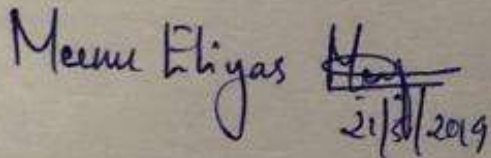 Meenu Eliyas
21/5/2019